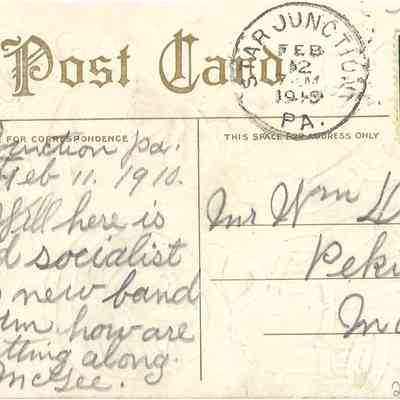 Post Card
STAR JUNCTION
FEB
12
M
PA.
FOR CORRESPONDENCE
THIS SPACE FOR ADDRESS ONLY
Junction Pa.
Feb 11. 1910.
Will here is
socialist
new band
how are
tting along.
McGee.
Mr Wm